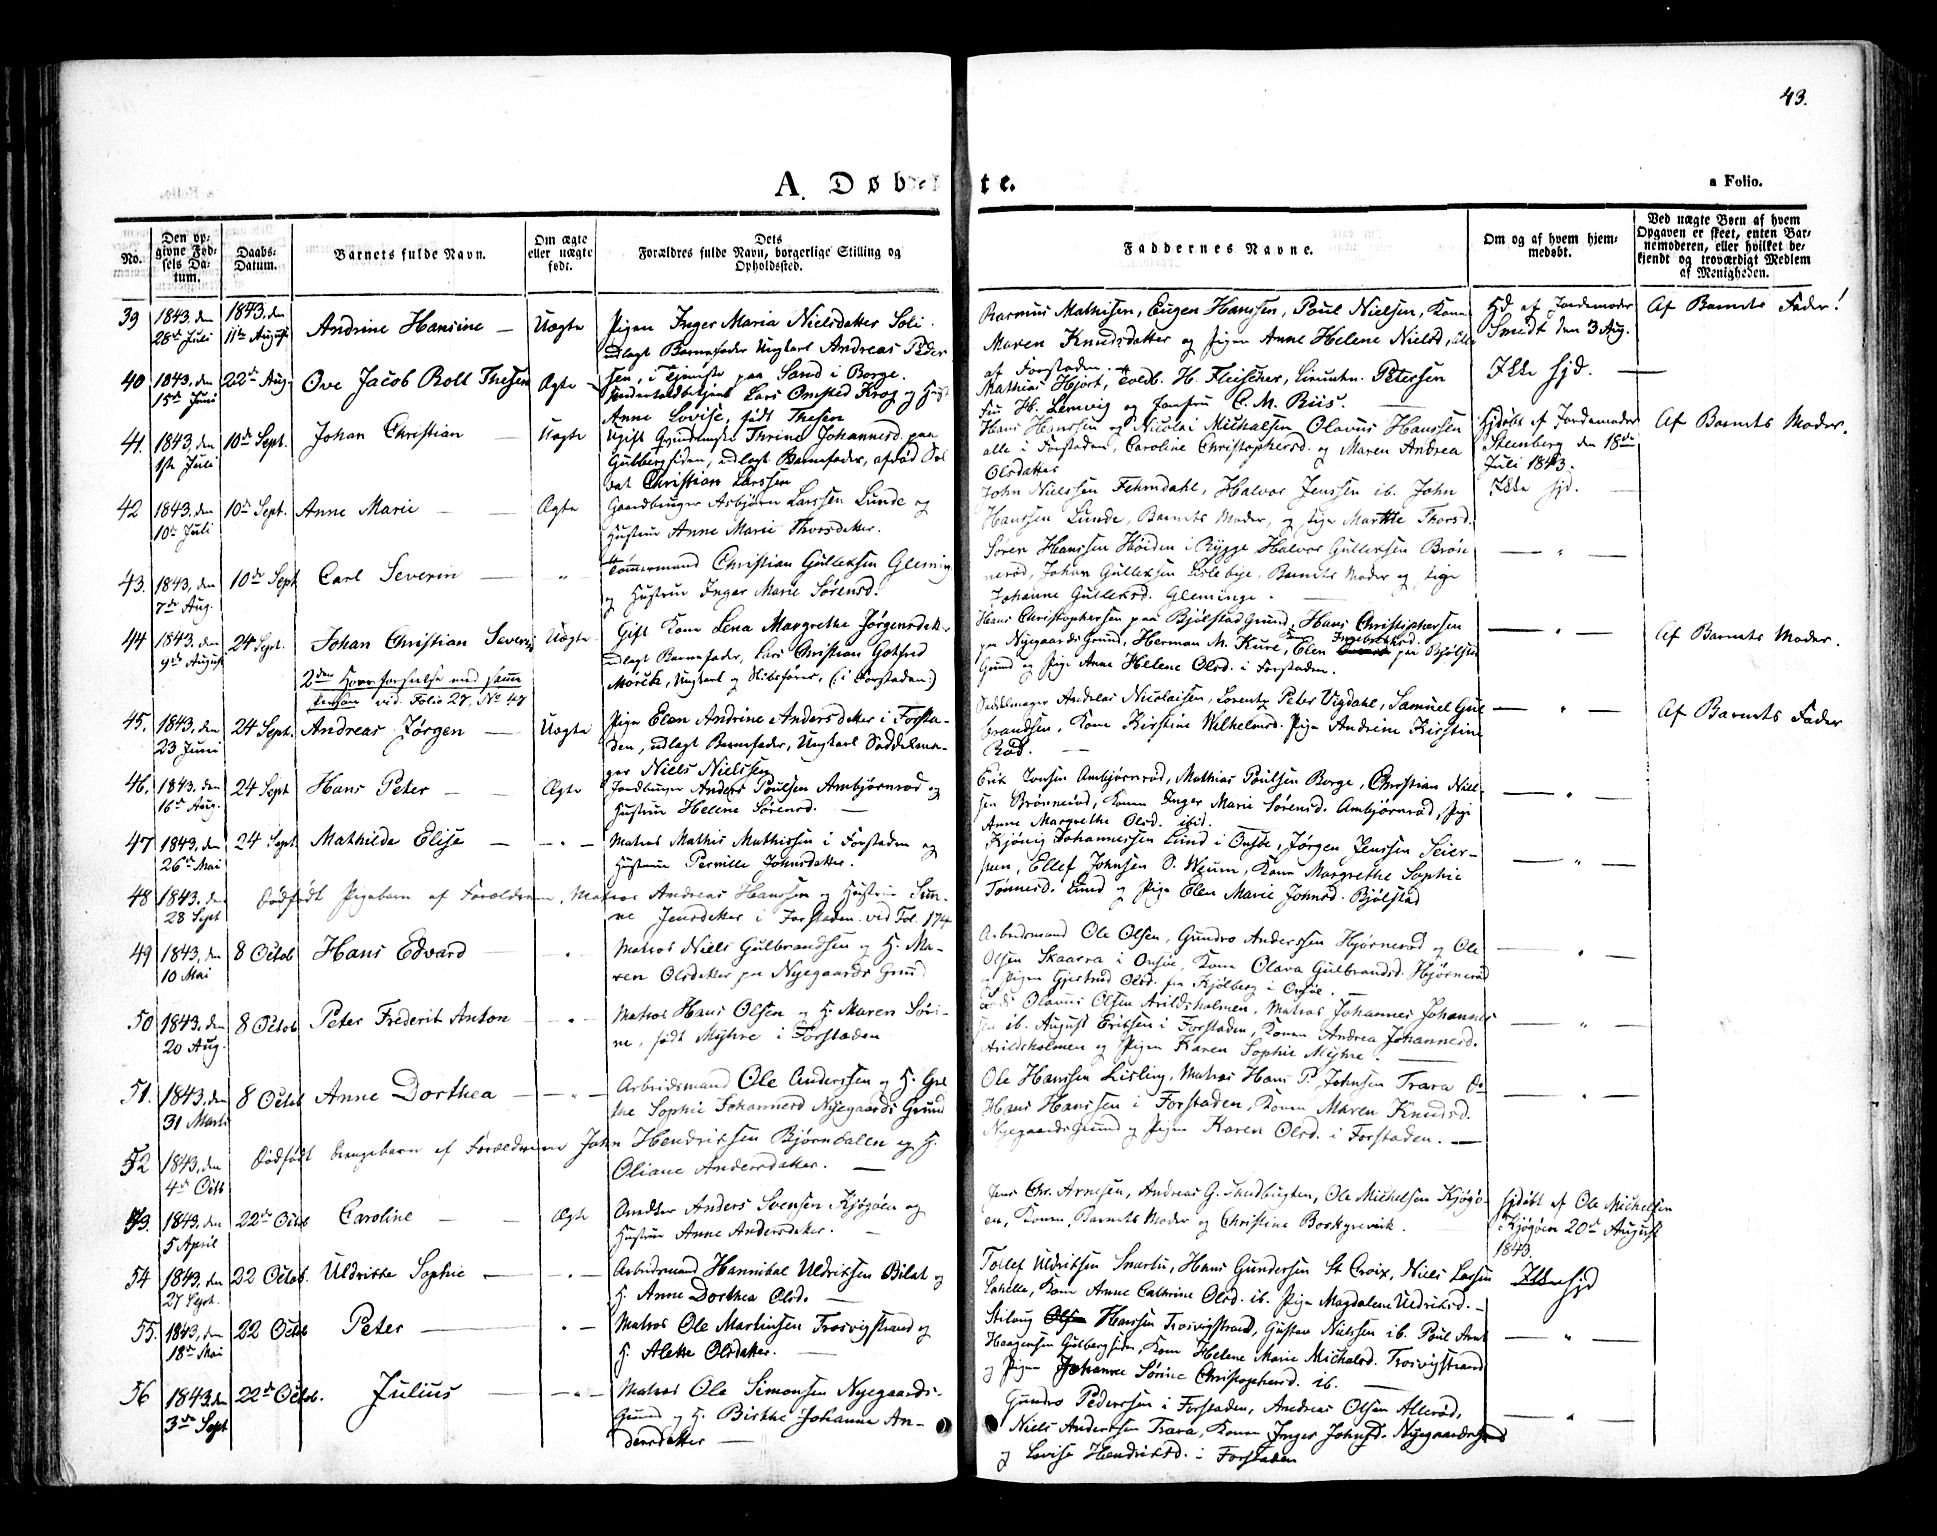 43.
A. Døbte.
a Folio.
No.
Den opgivne Fødsels Datum.
Daabs-Datum.
Barnets fulde Navn.
Om ægte eller uægte født.
Dets Forældres fulde Navn, borgerlige Stilling og Opholdssted.
Faddernes Navne.
Om og af hvem hjemmedøbt.
Ved uægte Børn af hvem Opgaven er skeet, enten Barnemoderen, eller hvilket bekjendt og troværdigt Medlem af Menigheden.
39 1843, den 28de Juli 1843, den 11te August Andrine Hansine — Uægte
Pigen Inger Maria Nielsdatter Soli.
udlagt Barnefader Ungkarl Andreas Peder-
sen, i Tjeneste paa Sand i Borge.
Rasmus Mathisen, Eugen Hanssen, Poul Nielsen, Kone
Maren Knudsdatter og Pigen Anne Helene Nielsd, alle
af Forstaden.
Hjd af Jordemoder
Smidt den 3 Aug.
Af Barnets Fader!
40 1843, den 15de Juni 22de Aug Ove Jacob Roll Thesen Ægte
Undertoldbetjent Lars Omsted Krog og Hust
Anne Lovise, født Thesen
Mathias Hjort, H. Fleischer, Petersen
Fru H. Lemvig og Jomfru C. M. Riis.
Ikke Hjd.
41. 1843, den 1ste Juli 10de Sept. Johan Christian — Uægte
Ugift Thrine Johannesd. paa
Gulbergsiden, udlagt Barnefader, afdød Sol
dat Christian Larssen
Hans Hanssen og Nicolai Michalsen, Olavus Hanssen
alle i Forstaden, Caroline Christophersd. og Maren Andrea
Olsdatter
Hjdøbt af Jordemoder
Steenberg den 18de
Juli 1843.
Af Barnets Moder.
42 1843, den 10de Juli 10de Sept. Anne Marie — Ægte
Gaardbruger Asbjørn Larssen Lunde og
Hustrue Anne Marie Thorsdatter.
John Nielssen Fehmdahl, Halvor Jenssen ib. John
Hanssen Lunde, Barnets Moder, og Pige Marthe Thorsd.
Ikke Hjd.
43. 1843, den 7de Aug. 10de Sept Carl Severin — "
Tømmermand Christian Gullicksen Gleminge
og Hustrue Inger Marie Sørensd.
Søren Hanssen Høiden i Rygge Halvor Gullicksen Brøn
nerød, Johan Gullicksen Lislebye, Barnets Moder og Pige
Johanne Gullicksd. Gleminge.
— " —
44 1843, den 9de August 24 Sept. Johan Christian Severin Uægte
2den Horeforseelse med samme
Person vid. Folio 27, No 47
Gift Kone Lena Margrethe Jørgensdatter
udlagt Barnefader, Lars Christian Gotfred
Mørck, Ungkarl og Skibsfører, (i Forstaden:)
Hans Christophersen paa Bjølstad Grund, Hans Christophersen
paa Nyegaards Grund, Herman M. Kure, Kone Elen Ingebretsd. paa Bjølstad
Grund og Pige Anne Helene Olsd. i Forstaden.
— " —
Af Barnets Moder.
45, 1843, den 23 Juni 24 Sept. Andreas Jørgen — Uægte
Pigen Elen Andrine Andersdatter i Forsta-
den, udlagt Barnefader, Ungkarl Saddelma-
ger Niels Nielssen
Saddelmager Andreas Nicolaisen, Lorentz Peter Vigdahl, Samuel Gul
brandsen, Kone Kirstine Wilhelmsd. Pigen Andrine Kirstine
Rød.
— " —
Af Barnets Fader
46, 1843, den 16de Aug. 24 Sept Hans Peter — Ægte
Jordbruger Anders Poulsen Ambjørnrød og
Hustrue Helene Sørensd.
Erik Jonsen Ambjørnrød, Mathias Poulsen Borge, Christian Niel-
sen Brønnerød, Konen Inger Marie Sørensd. Ambjørnrød, Pige
Anne Margrethe Olsd. ibid.
— " —
47 1843, den 26de Mai 24 Sept Mathilde Elise — " —
Matros Mathis Mathissen i Forstaden og
Hustrue Pernille Johnsdatter.
Kjønig Johannessen Lund i Onsøe, Jørgen Jenssen Seier-
steen, Ellef Johnsen Ø. Weum, Kone Margrethe Sophie
Tønnesd. Lund og Pige Elen Marie Johnsd. Bjølstad
— " —
48 1843, den 28 Sept Dødfødt Pigebarn af Forældrene, Matros Andreas Hanssen og Hustrue Sun-
ne Jensdatter i Forstaden. vid Fol. 174
49 1843, den 10 Mai 8 Octob Hans Edvard — " —
Matros Niels Gulbrandsen og H. Ma-
ren Olsdatter paa Nyegaards Grund
Arbeidsmand Ole Olsen, Gundro Anderssen Hjørnerød og Ole
Olsen Skaarra i Onsøe, Kone Olava Gulbrandsd. Hjørnerød
og Pigen Gjertrud Olsd. fra Kjølberg i Onsøe.
— " —
50 1843, den 20 Aug. 8 Octob Peter Frederik Anton — " —
Matros Hans Olsen og H. Maren Søri-
ne, født Myhre i Forstaden
Olavus Olsen Arildsholmen, Matros Johannes Johannes
sen ib. August Ericksen i Forstaden, Konen Andrea Johannesd.
Arildsholmen og Pigen Karen Sophie Myhre.
— " —
51. 1843, den 31 Marts 8 Octob Anne Dorthea — " —
Arbeidsmand Ole Anderssen og H. Gre
the Sophie Johannesd Nyegaards Grund
Ole Hanssen Lisling, Matros Hans P. Johnsen Trara Do
Hans Hanssen i Forstaden, Konen Maren Knudsd.
Nyegaards Grund og Pigen Karen Olsd. i Forstaden.
— " —
52 1843, den 4de Octb Dødfødt Drengebarn af Forældrene John Hendriksen Bjørndalen og H.
Oliane Andersdatter.
53. 1843, den 5 April 22de Octb Caroline — Ægte
Anders Svensen Kjøgøen og
Hustrue Anne Andersdatter.
Jens Chr. Arnesen, Andreas G. Sandbugten, Ole Michelsen Kjøgø-
en, Konen, Barnets Moder og Christine Borkgrevink.
Hjdøbt af Ole Michelsen
Kjøgøen 20de August
1843.
54 1843, den 27 Sept. 22 Octob. Uldrikke Sophie — " —
Arbeidsmand Hannibal Uldriksen Bilat og
H. Anne Dorthea Olsd.
Tollef Uldriksen Smertu, Hans Gundersen St Croix, Niels Larsen
Lahella, Kone Anne Cathrine Olsd. ib. Pige Magdalene Uldriksd.
Ikke Hjd
55. 1843, den 18de Mai 22 Octb Peter — " —
Matros Ole Martinsen Trosvigstrand og
H. Alette Olsdatter.
Hanssen Trosvigstrand, Gustav Nielssen ib. Poul Ant
Haagensen Gulbergsiden, Kone Helene Marie Michelsd. Trosvigstrand
og Pigen Johanne Sørine Christophersd. ib.
— " —
56 1843, den 3de Sept 22de Octob. Julius — " —
Matros Ole Simonsen Nyegaards-
Grund og H. Birthe Johanne An-
dersdatter
Gundro Pederssen i Forstaden, Andreas Olsen Allerød,
Niels Anderssen Trara, Konen Inger Johnsd. Nyegaardsgrund
og Lovise Hendriksd. i Forstaden
— " —